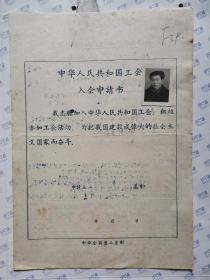 中华人民共和国工会
入会申请书
我志愿加入中华人民共和国工会，积极
参加工会活动，为把我国建设成伟大的社会主
义国家而奋斗。
申请人
年 月 日
中华全国总工会制